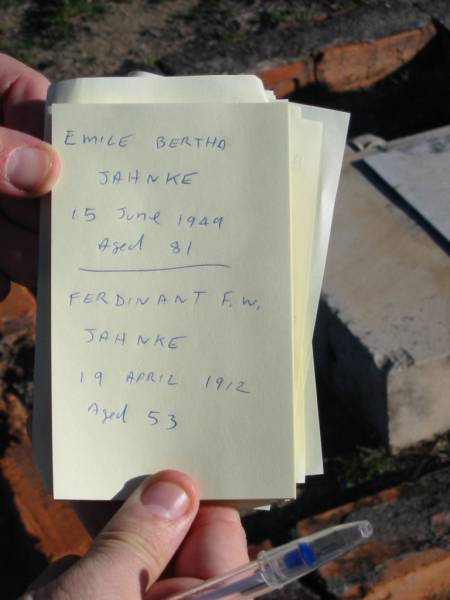 EMILE BERTHA
JAHNKE
15 June 1949
Aged 81
FERDINANT F.W.
JAHNKE
19 APRIL 1912
Aged 53